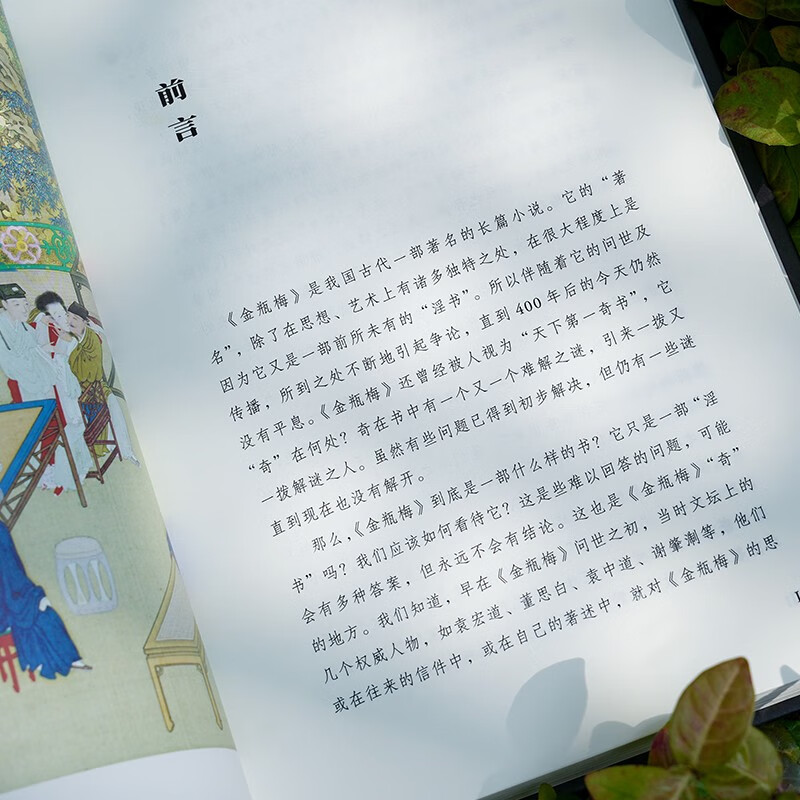 前言
《金瓶梅》是我国古代一部著名的长篇小说。它的“著
名”，除了在思想、艺术上有诸多独特之处，在很大程度上是
因为它又是一部前所未有的“淫书”。所以伴随着它的问世及
传播，所到之处不断地引起争论，直到400年后的今天仍然
没有平息。《金瓶梅》还曾经被人视为“天下第一奇书”，它
“奇”在何处？奇在书中有一个又一个难解之谜，引来一拨又
一拨解谜之人。虽然有些问题已得到初步解决，但仍有一些谜
直到现在也没有解开。
那么，《金瓶梅》到底是一部什么样的书？它只是一部“淫
书”吗？我们应该如何看待它？这是些难以回答的问题，可能
会有多种答案，但永远不会有结论。这也是《金瓶梅》“奇”
的地方。我们知道，早在《金瓶梅》问世之初，当时文坛上的
几个权威人物，如袁宏道、董思白、袁中道、谢肇淛等，他们
或在往来的信件中，或在自己的著述中，就对《金瓶梅》的思